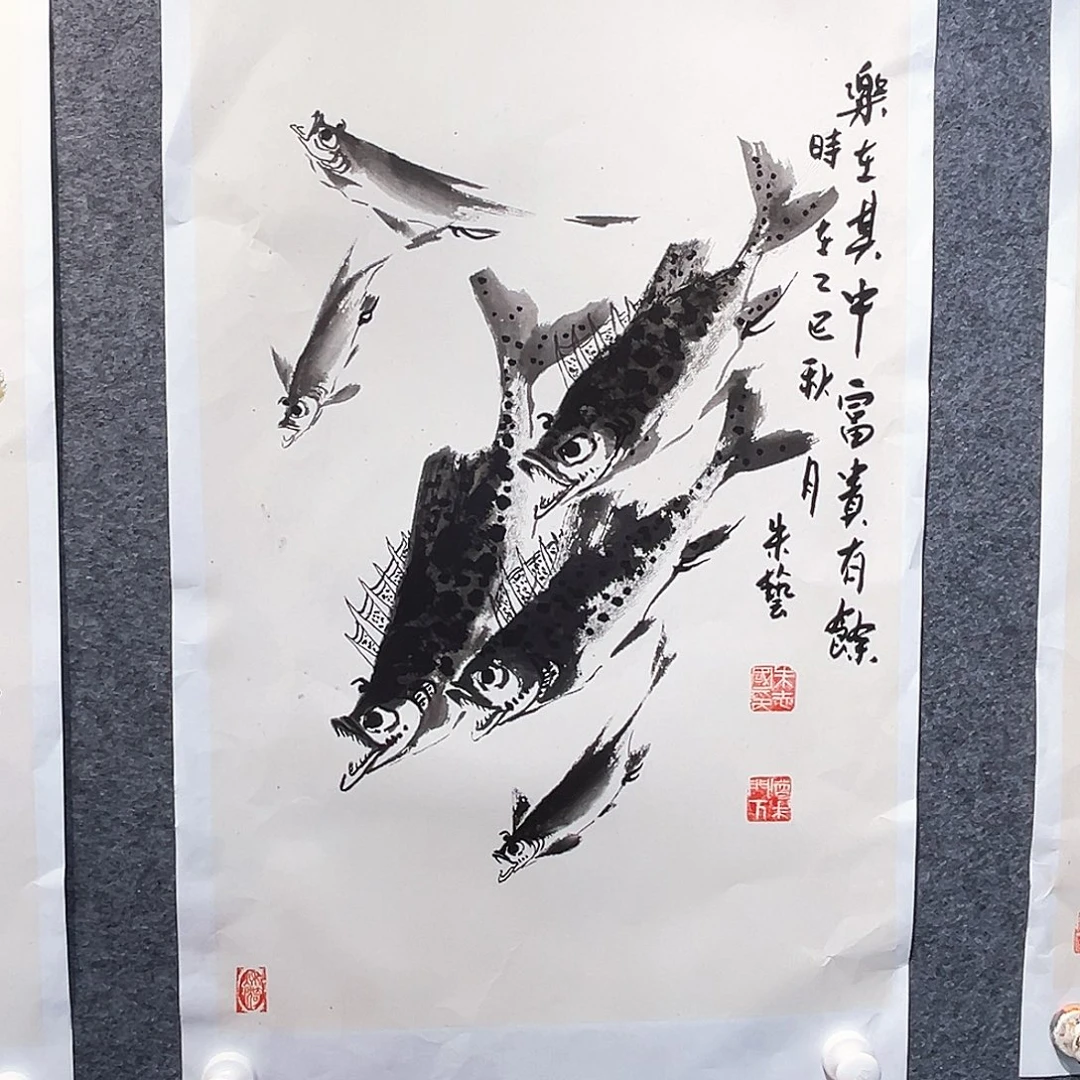 樂在其中富貴有餘
時在乙巳秋月
朱藝